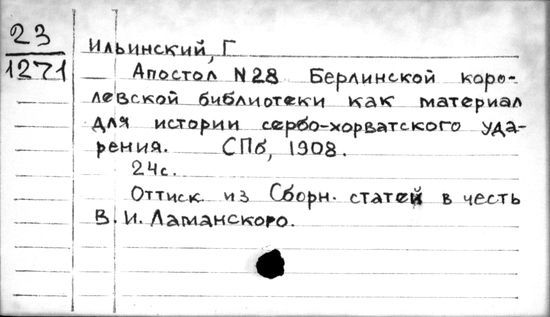 23
1271
Ильинский, Г
Апостол N28 Берлинской коро-
левской библиотеки как материал
для истории сербо-хорватского уда-
рения. СПб, 1908.
24с.
Оттиск из Сборн. статей в честь
В.И. Ламанского.